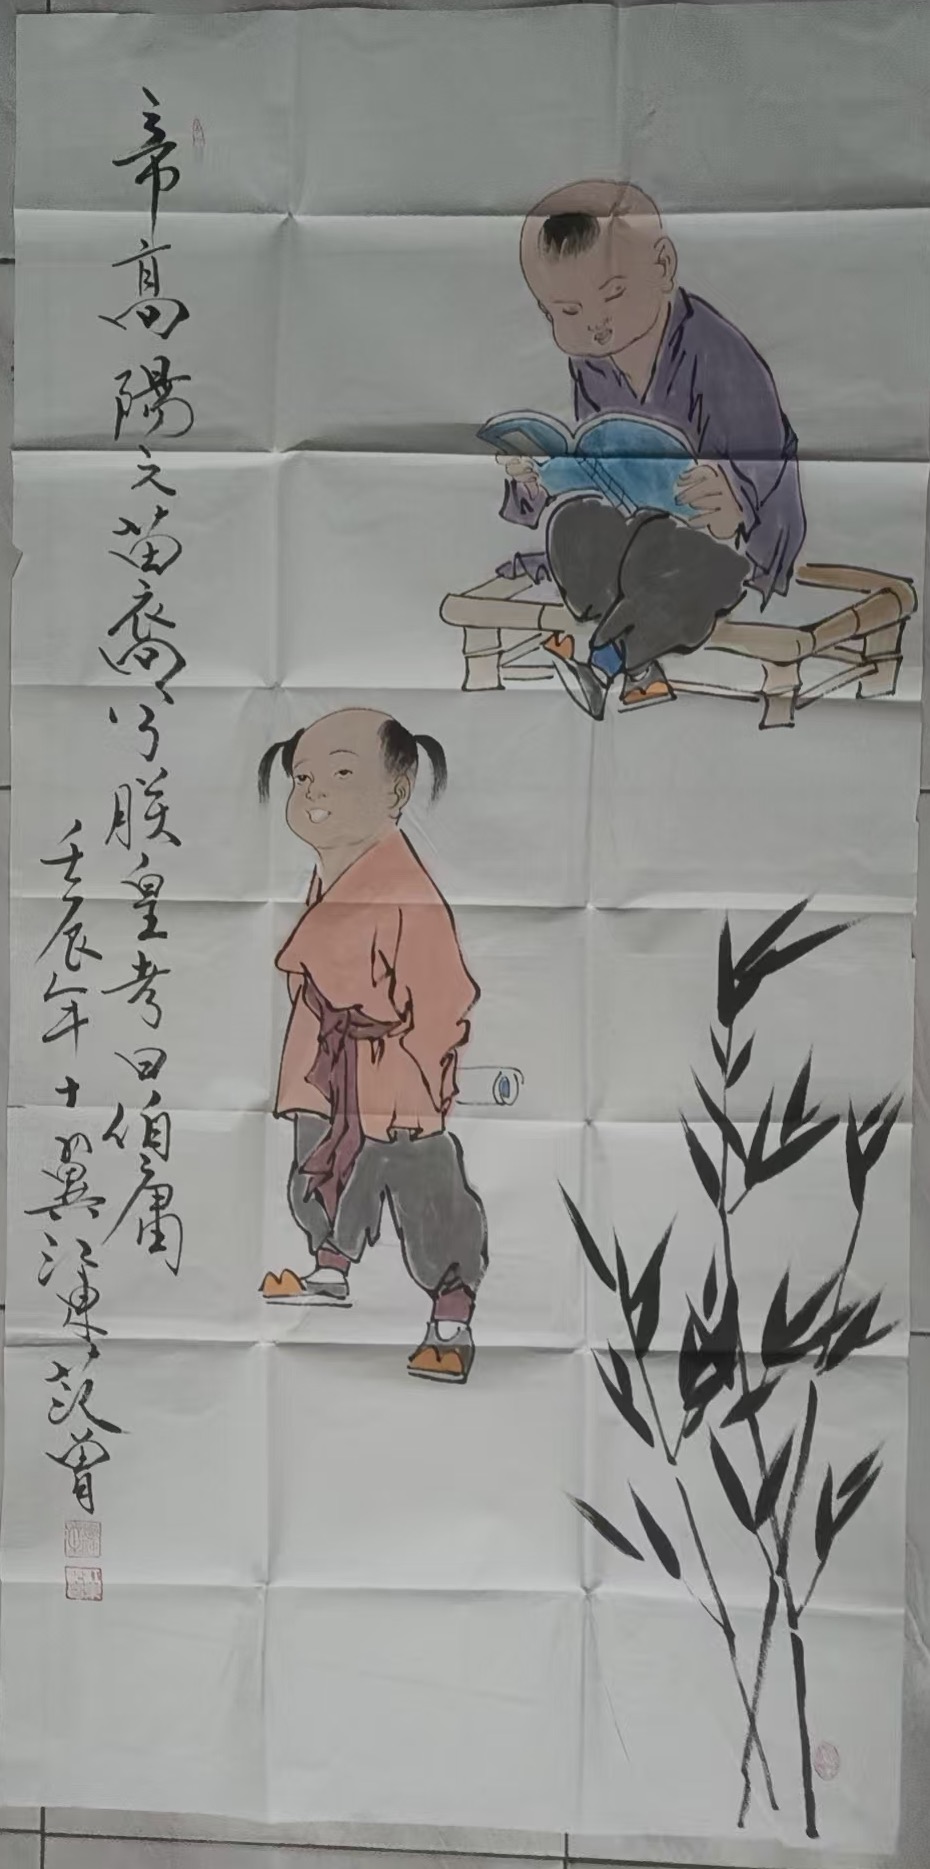 帝高陽之苗裔兮朕皇考曰伯庸
壬辰年十翼江東范曾